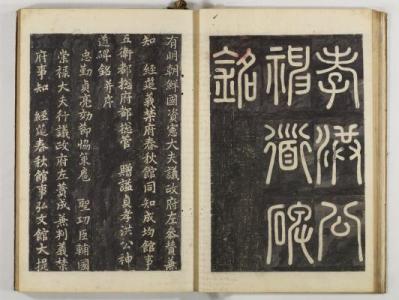 孝洪公
神道碑
銘
有明朝鮮國資憲大夫議政府左參贊兼
知 經筵義禁府春秋館同知成均館事
五衛都摠府都摠管 贈謚貞孝洪公神
道碑銘并序
忠勤貞亮効節恊策扈 聖功臣輔國
崇祿大夫行議政府左贊成兼判義禁
府事知 經筵春秋館事弘文館大提